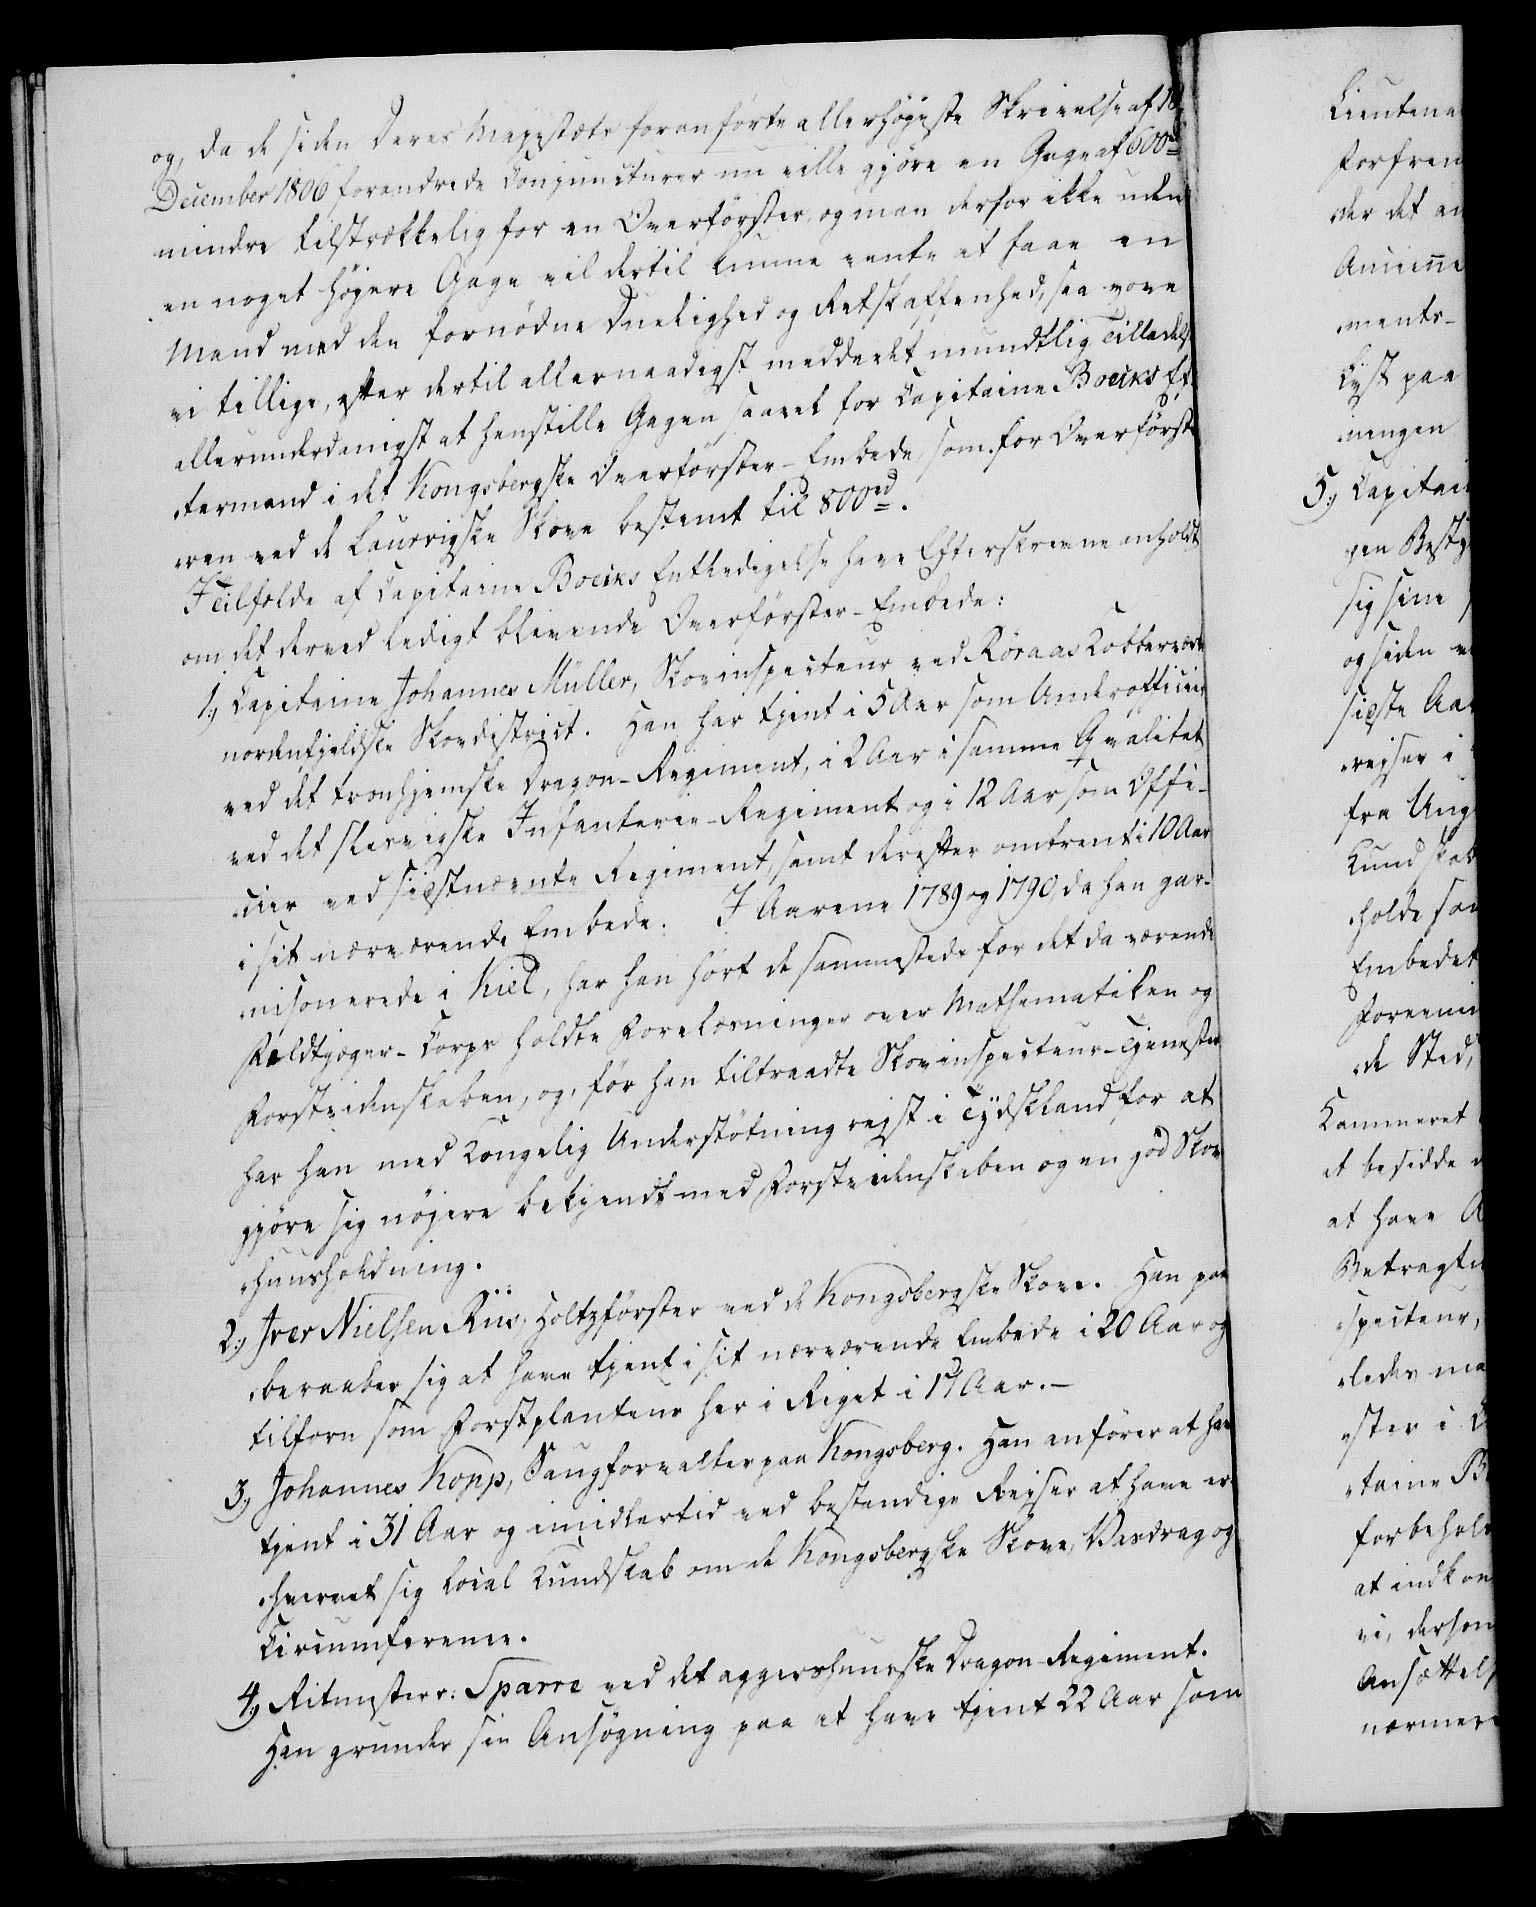 og, da de siden Deres Majestæts foranførte allerhøjeste Skrivelse af 18
December 1806 forandrede Conjuncturer nu ville gjøre en Gage af 600rd
mindre tilstrækkelig for en Overførster, og man derfor ikke uden
en noget højere Gage vil dertil kunne vente at faae en
Mand med den fornødne Duelighed og Retskaffenhed, saa vove
vi tillige, efter dertil allernaadigst meddeelt mundtlig Tilladelse
allerunderdanigst at henstille Gagen saavel for Capitaine Boecks Ef-
termand i det Kongsbergske Overførster-Embede, som for Overførste
ren ved de Laurvigske Skove bestemt til 800rd.
I Tilfølde af Capitaine Boecks Entledigelse have Efterskrevne anholdt
om det derved ledigt blivende Overførster-Embede:
1, Capitaine Johannes Müller, Skovinspecteur ved Røraas Kobberværk
nordenfjeldske Skovdistrict. Han har tjent i 5 Aar som Underofficier
ved det tronhjemske Dragon-Regiment, i 2 Aar i samme Qvalitet
ved det slesvigske Infanterie-Regiment og i 12 Aar som Offi-
cier ved sidstnævnte Regiment, samt derefter omtrent i 10 Aar
i sit nærværende Embede. I Aarene 1789 og 1790, da han gar-
nisonerede i Kiel, har han hørt de sammestede for det da værende
Feldtjæger-Corps holdte Forelæsninger over Mathematiken og
Forstvidenskaben, og, før han tiltraadte Skovinspecteur-Tjenesten
har han med Kongelig Understøtning rejst i Tydskland for at
gjøre sig nøjere bekjendt med Forstvidenskaben og en god Skov
huusholdning.
2, Iver Nielsen Riis, Holtzførster ved de Kongsbergske Skove. Han paa
beraaber sig at have tjent i sit nærværende Embede i 20 Aar og
tilforn som Forstplanteur her i Riget i 17 Aar.-
3, Johannes Kopp, Saugforvalter paa Kongsberg. Han anfører at have
tjent i 31 Aar og imidlertid ved bestandige Rejser at have er-
hvervet sig local Kundskab om de Kongsbergske Skove, Vasdrag og
Circumference.
4, Ritmester v: Sparre ved det aggershuusske Dragon-Regiment.
Han grunder sin Ansøgning paa at have tjent 22 Aar som
Lieutena
forfrem
der det an
Ancienne
ments-
Lyst paa
ningen
5, Capitai
gen Besty
sig sine
og siden
sidste Aar
rejser i
fra Ung
Kundskab
holde sam
Embedet
Foreenin
de Sted,
Kammeret
at besidde
at have
Betragtn
specteur,
ledes ma
ster i
taine B
forbehol
at indkom
vi, dersom
Ansættels
nærmere